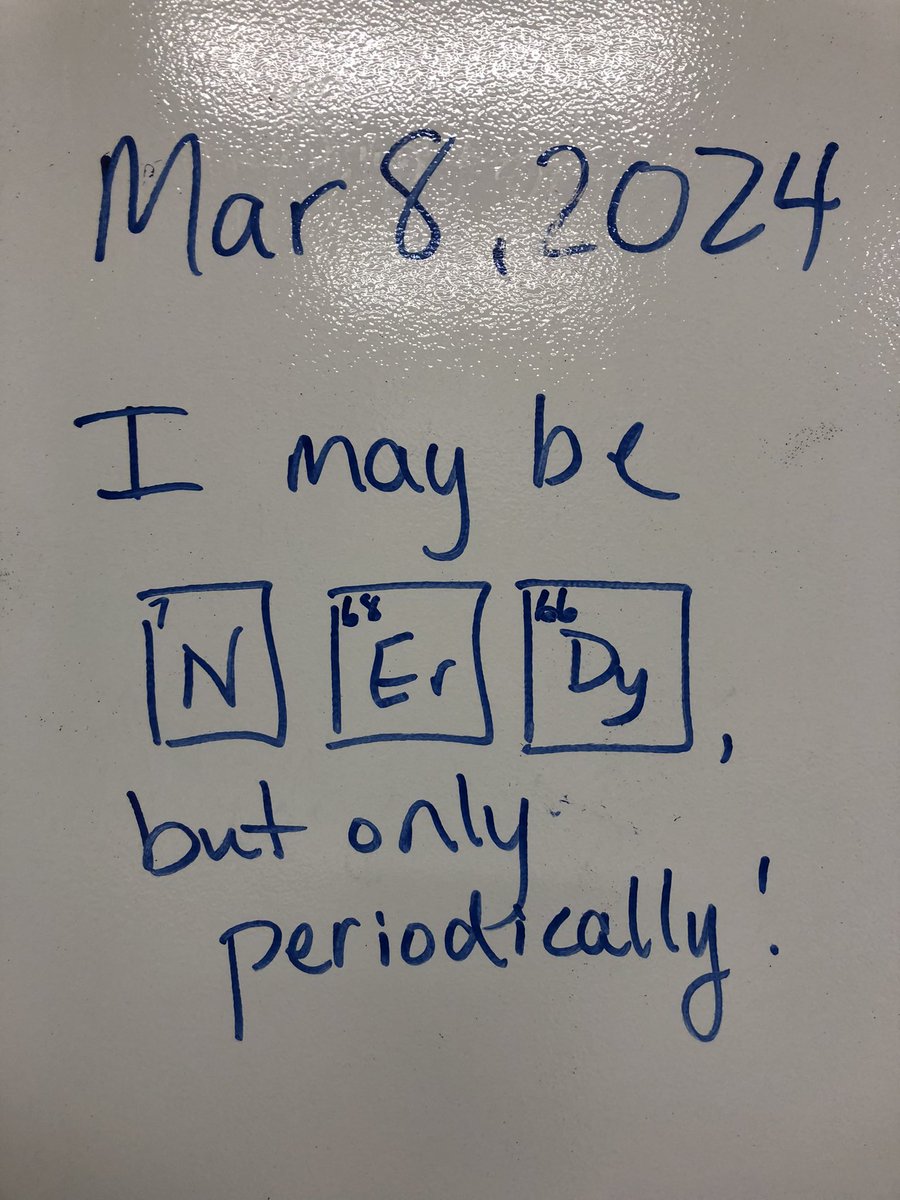 Mar 8, 2024
I may be
7 68 66
N Er Dy,
but only
periodically!